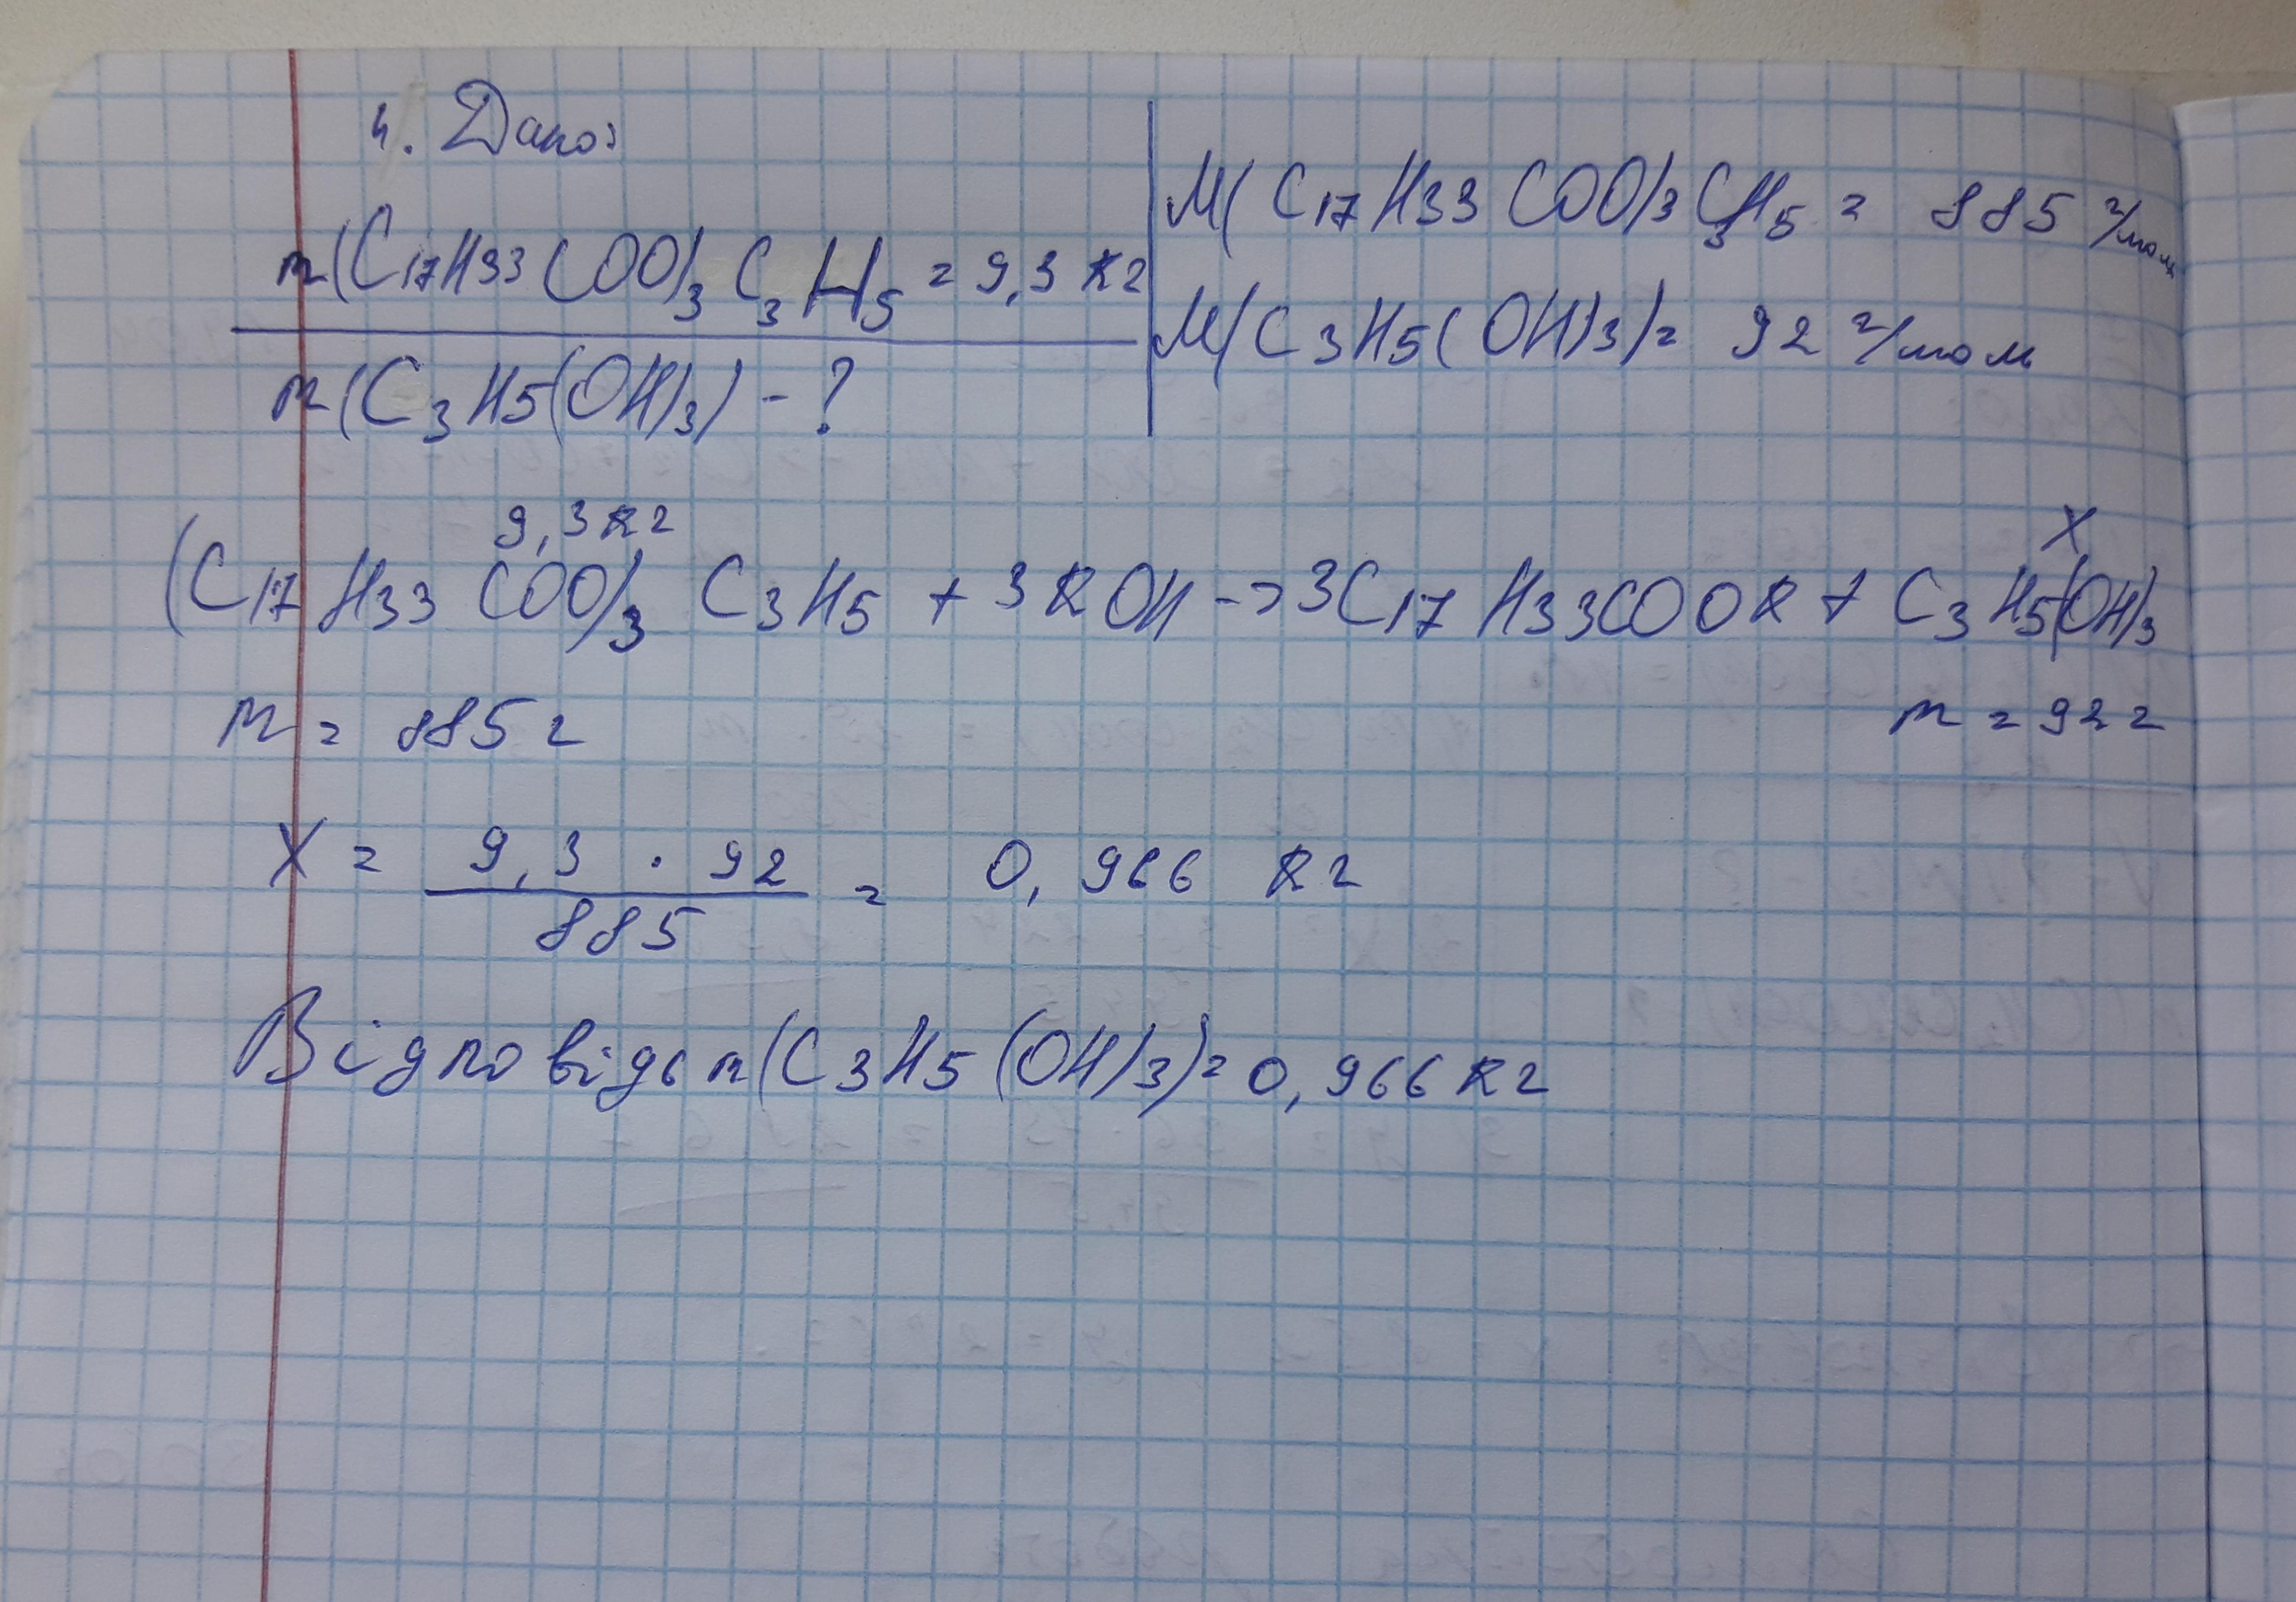 4. Дано:
m(C17H33COO)3C3H5 = 9,3 кг
m(C3H5(OH)3) - ?
M(C17H33COO)3C3H5 = 885 г/моль
M(C3H5(OH)3) = 92 г/моль
9,3кг X
(C17H33COO)3C3H5 + 3KOH -> 3C17H33COOK + C3H5(OH)3
m = 885г m = 92г
X = 9,3 · 92 / 885 = 0,966 кг
Відповідь m(C3H5(OH)3) = 0,966 кг